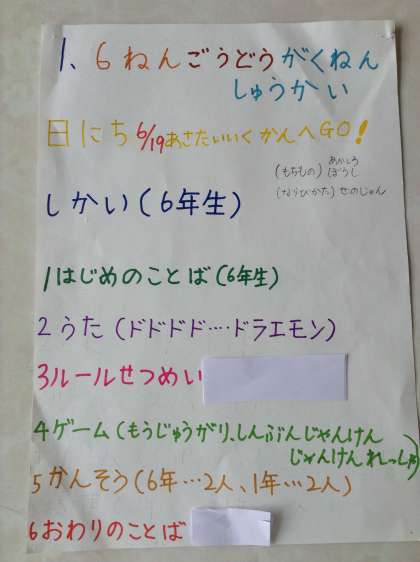 1、6ねんごうどうがくねん
しゅうかい
日にち 6/19 あさたいいくかんへGO!
(もちもの) あかしろ
ぼうし
(ならびかた) せのじゅん
しかい(6年生)
1はじめのことば(6年生)
2うた(ドドドド‥‥ドラエモン)
3ルールせつめい
4ゲーム(もうじゅうがり、しんぶんじゃんけん
じゃんけんれっしゃ)
5かんそう(6年…2人、1年…2人)
6おわりのことば